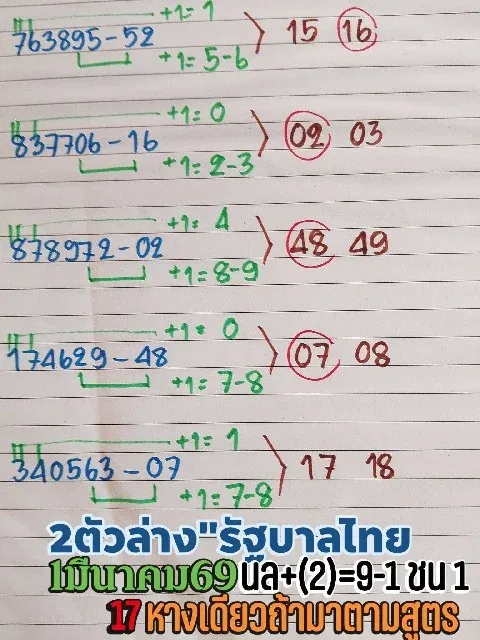 +1= 1
763895-52 > 15 16
+1= 5-6
+1= 0
837706-16 > 02 03
+1= 2-3
+1= 4
878972-02 > 48 49
+1= 8-9
+1= 0
174629-48 > 07 08
+1= 7-8
+1= 1
340563-07 > 17 18
+1= 7-8
2ตัวล่าง"รัฐบาลไทย
1มีนาคม69 นิล+(2)=9-1 ชน 1
17 หางเดียวถ้ามาตามสูตร